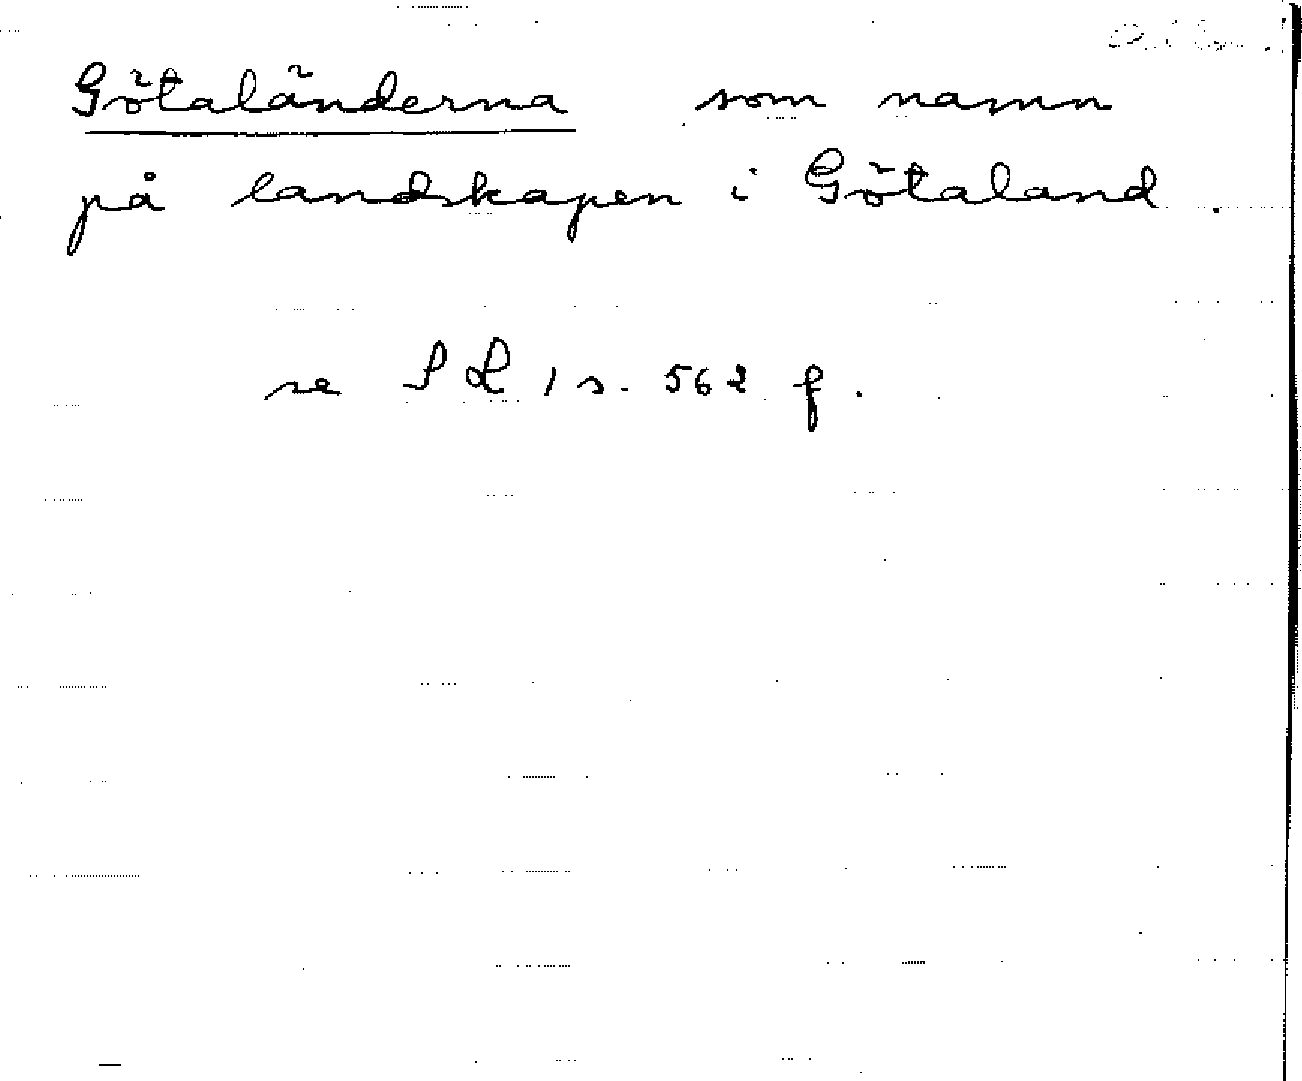 Götaländerna som namn
på landskapen i Götaland.
se SL 1 s. 562 f.